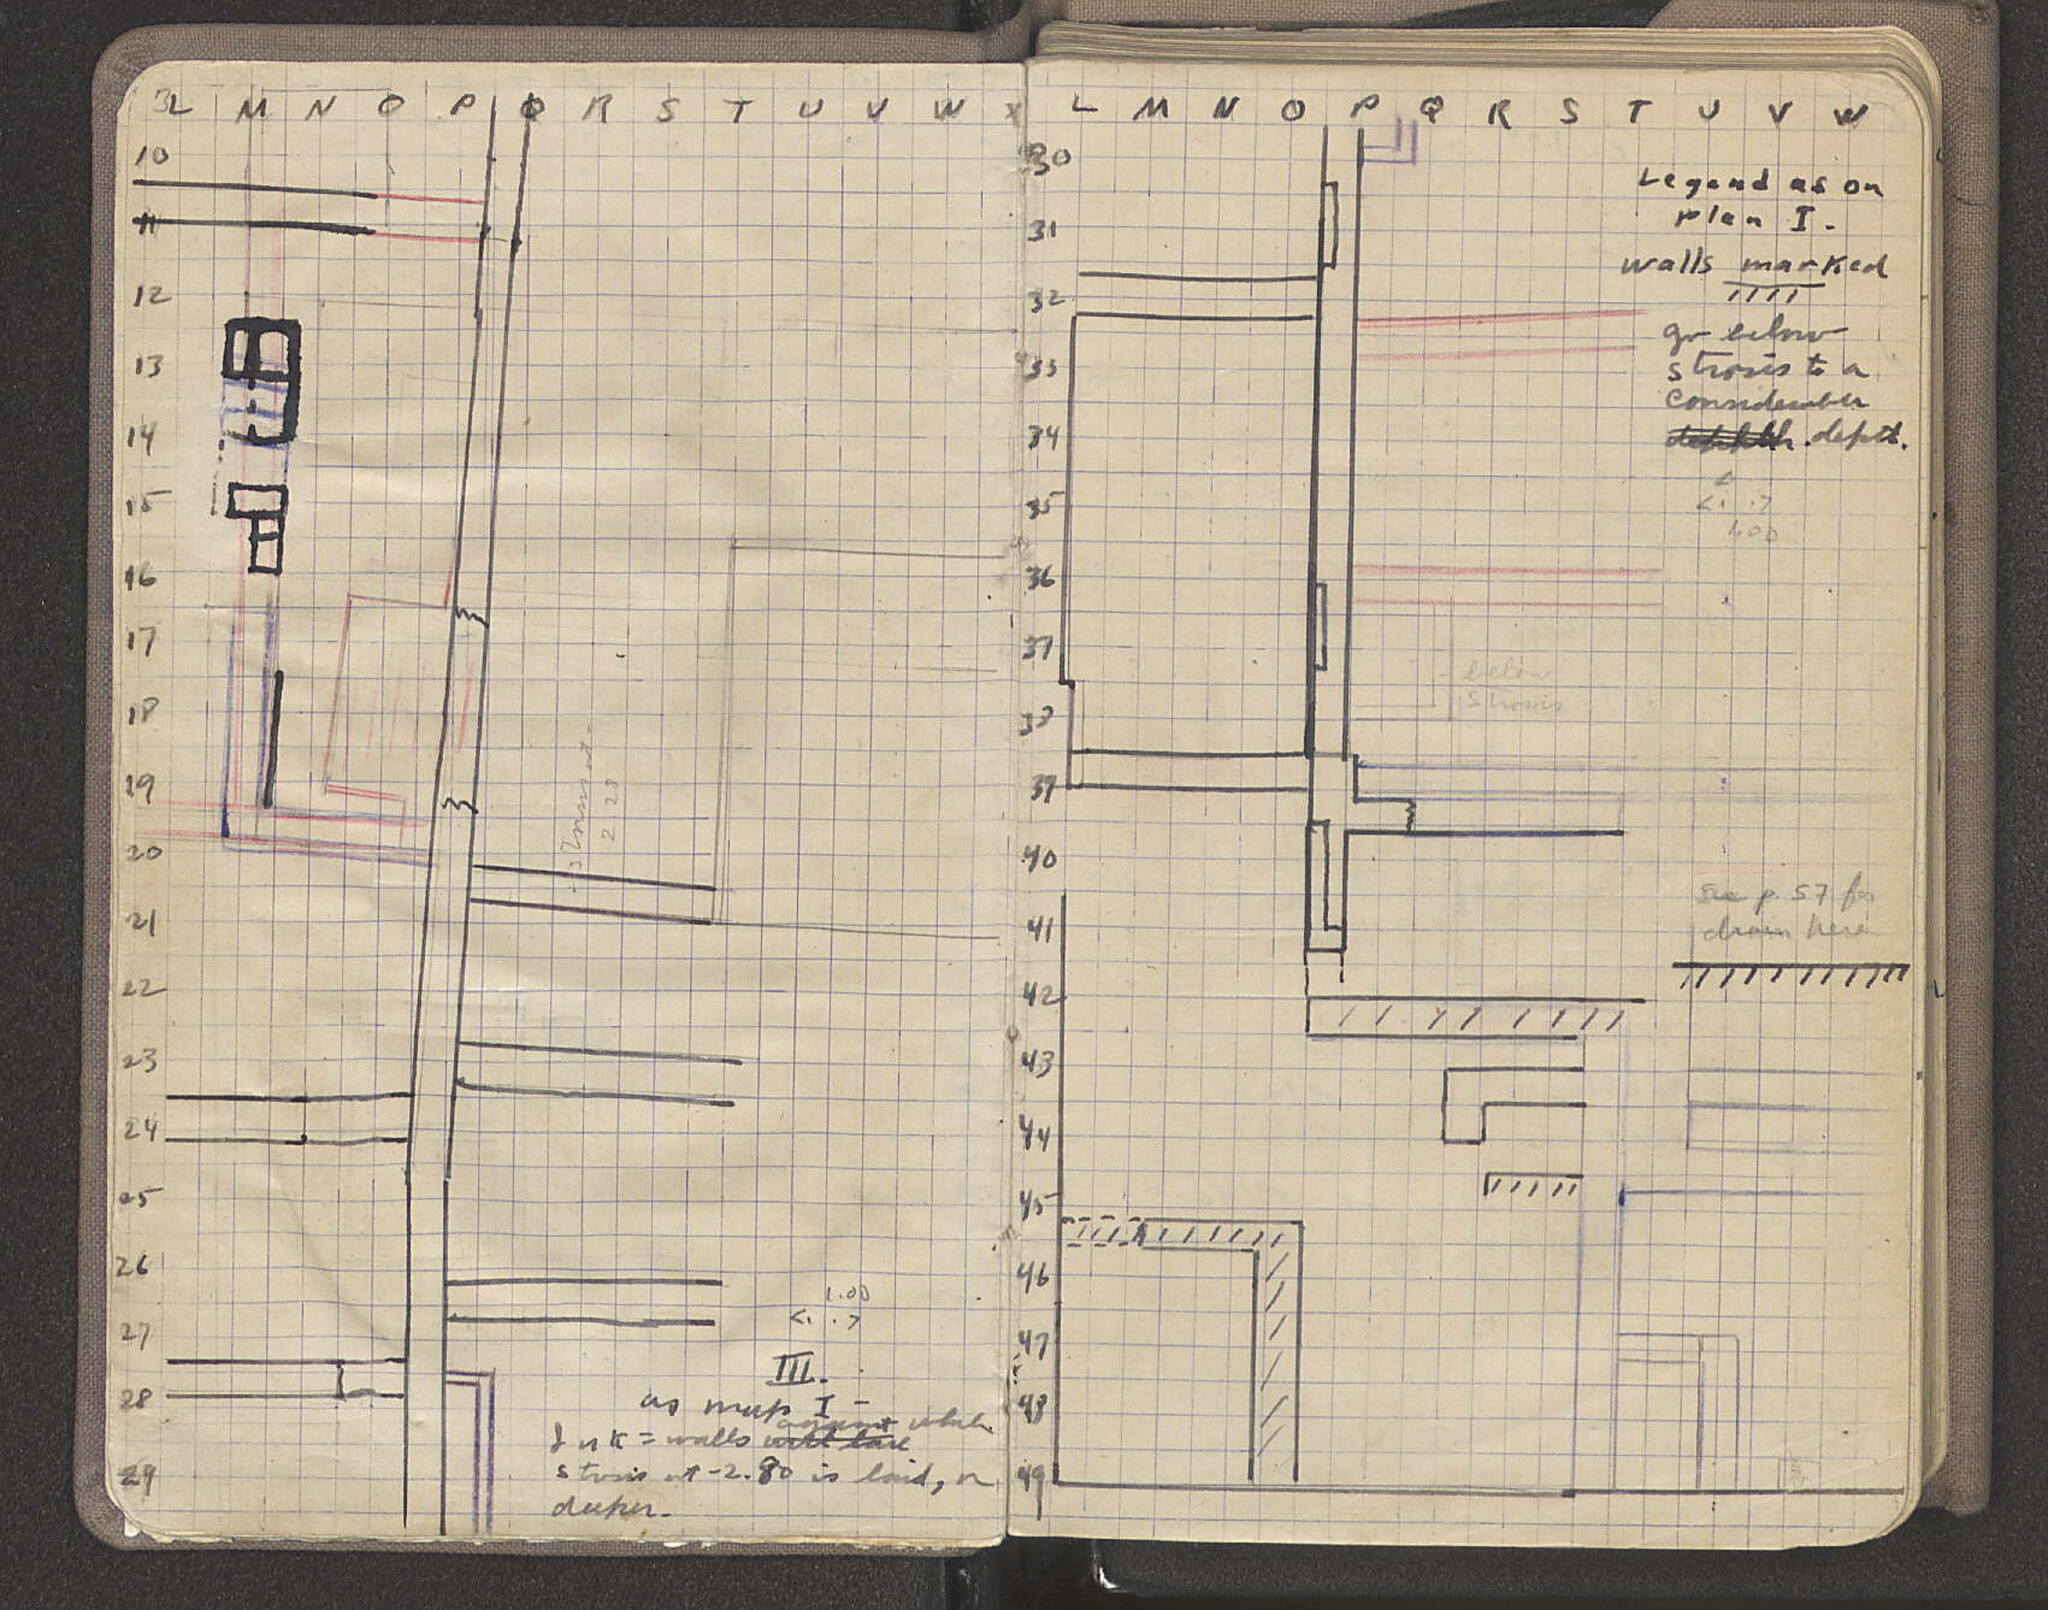 L M N O P Q R S T U V W X
10
11
12
13
14
15
16
17
18
19
20
21
22
23
24
25
26
27
28
29
2.23
1.00
<. .>
III.
as map I –
against which
Ink = walls
strosis at -2.80 is laid, or
deeper.
L M N O P Q R S T U V W
30
31
32
33
34
35
36
37
38
39
40
41
42
43
44
45
46
47
48
49
Legend as on
plan I.
walls marked
go below
strosis to a
considerable
depth.
<. .>
1.00
below
strosis
see p. 57 for
drain here